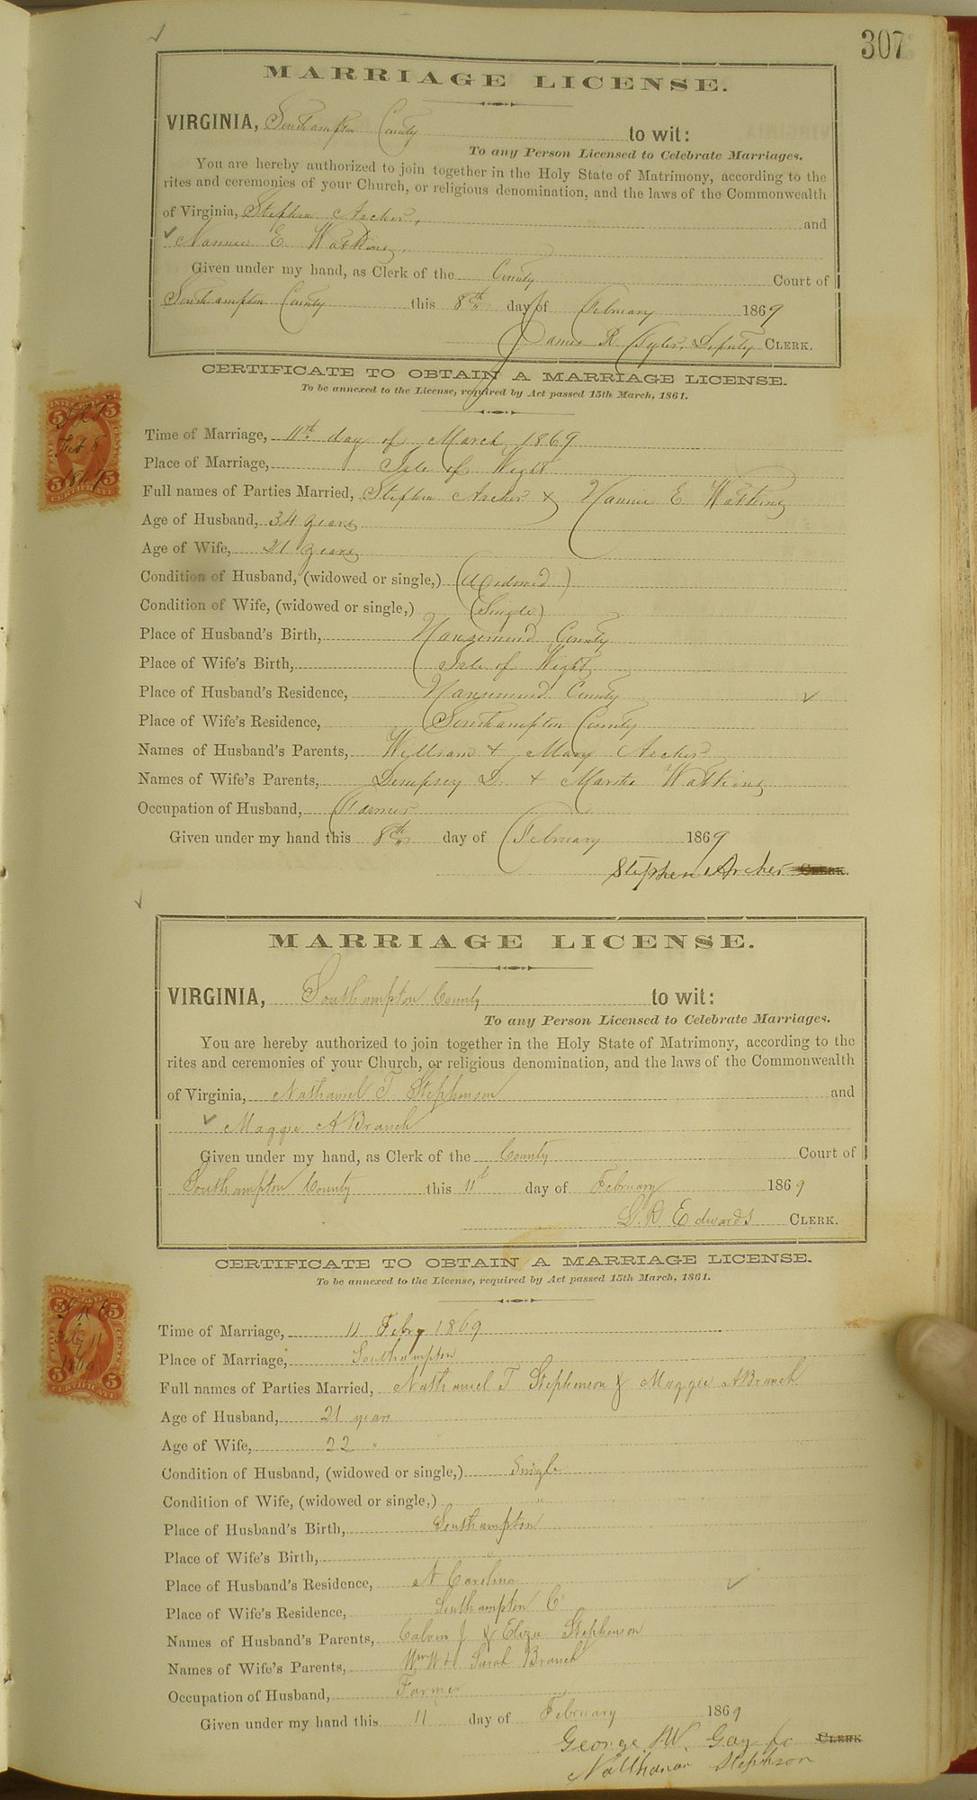 307
MARRIAGE LICENSE.
VIRGINIA, Southampton County to wit:
To any Person Licensed to Celebrate Marriages.
You are hereby authorized to join together in the Holy State of Matrimony, according to the
rites and ceremonies of your Church, or religious denomination, and the laws of the Commonwealth
of Virginia, Stephen Archer, and
Nannie E. Watkins.
Given under my hand, as Clerk of the County Court of
Southampton County this 8th day of February 1869
James R. Tyler, Deputy CLERK.
CERTIFICATE TO OBTAIN A MARRIAGE LICENSE.
To be annexed to the License, required by Act passed 15th March, 1861.
Time of Marriage, 11th day of March 1869
Place of Marriage, Isle of Wight
Full names of Parties Married, Stephen Archer & Nannie E. Watkins
Age of Husband, 34 years
Age of Wife, 21 years
Condition of Husband, (widowed or single,) (Widowed)
Condition of Wife, (widowed or single,) (Single)
Place of Husband's Birth, Nansemond County
Place of Wife's Birth, Isle of Wight
Place of Husband's Residence, Nansemond County
Place of Wife's Residence, Southampton County
Names of Husband's Parents, William & Mary Archer
Names of Wife's Parents, Dempsey D. & Martha Watkins
Occupation of Husband, Farmer
Given under my hand this 8th day of February 1869
Stephen Archer CLERK.
MARRIAGE LICENSE.
VIRGINIA, Southampton County to wit:
To any Person Licensed to Celebrate Marriages.
You are hereby authorized to join together in the Holy State of Matrimony, according to the
rites and ceremonies of your Church, or religious denomination, and the laws of the Commonwealth
of Virginia, Nathaniel T Stephenson and
Maggie A Branch
Given under my hand, as Clerk of the County Court of
Southampton County this 11th day of February 1869
L. R. Edwards CLERK.
CERTIFICATE TO OBTAIN A MARRIAGE LICENSE.
To be annexed to the License, required by Act passed 15th March, 1861.
Time of Marriage, 11 Feby 1869
Place of Marriage, Southampton
Full names of Parties Married, Nathaniel T Stephenson & Maggie A Branch
Age of Husband, 21 years
Age of Wife, 22 "
Condition of Husband, (widowed or single,) Single
Condition of Wife, (widowed or single,) "
Place of Husband's Birth, Southampton
Place of Wife's Birth, "
Place of Husband's Residence, N Carolina
Place of Wife's Residence, Southampton Co
Names of Husband's Parents, Calvin J & Eliza Stephenson
Names of Wife's Parents, Wm W & Sarah Branch
Occupation of Husband, Farmer
Given under my hand this 11 day of February 1869
George W. Gay for CLERK
Nathanan Stephson